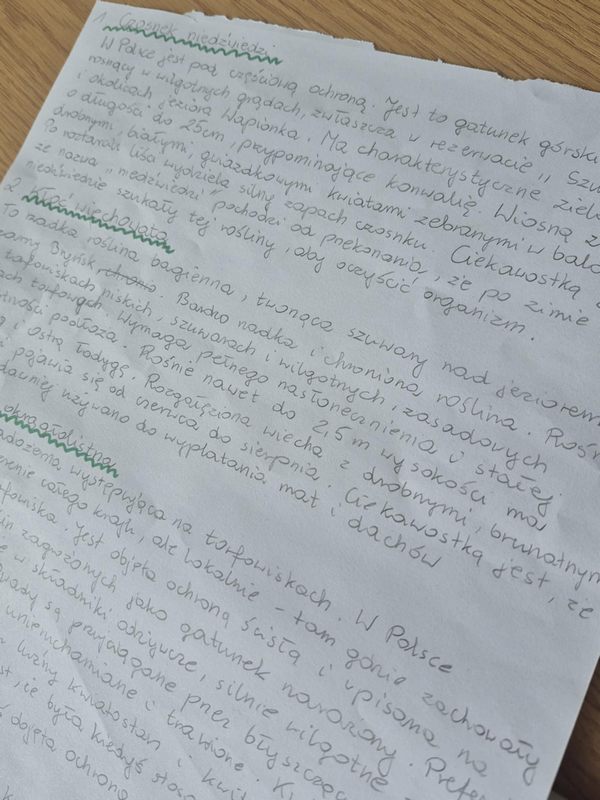 1. Czosnek niedźwiedzi
W Polsce jest pod częściową ochroną. Jest to gatunek górski
rosnący w wilgotnych grądach, zwłaszcza w rezerwacie "Szu
i okolicach jeziora Wapionka. Ma charakterystyczne ziel
o długości do 25cm, przypominające konwalię. Wiosną z
drobnymi, białymi, gwiazdkowymi kwiatami zebranymi w bald
Po roztarciu liści wydziela silny zapach czosnku. Ciekawostką
że nazwa "niedźwiedzi" pochodzi od przekonania, że po zimie
niedźwiedzie szukały tej rośliny, aby oczyścić organizm.
2. Kłoć wiechowata
To rzadka roślina bagienna, tworząca szuwary nad jeziorem
Bryńsk. Bardzo rzadka i chroniona roślina. Rośn
torfowiskach niskich, szuwarach i wilgotnych, zasadowych
ach torfowych. Wymaga pełnego nasłonecznienia i stałej
otności podłoża. Rośnie nawet do 2,5 m wysokości ma
ostrą łodygę. Rozgałęziona wiecha z drobnymi, brunatnym
pojawia się od czerwca do sierpnia. Ciekawostką jest, że
dawniej używano do wyplatania mat i dachów
okrągłolistna
adożerna występująca na torfowiskach. W Polsce
erenie całego kraju, ale lokalnie - tam gdzie zachowały
orfowiska. Jest objęta ochroną ścisłą i wpisana na
in zagrożonych jako gatunek narażony. Prefer
w składniki odżywcze, silnie wilgotne
są przyciągane przez błyszcząc
unieruchamiane i trawione.
luźny kwiatostan i
że była kiedyś
objęta ochroną